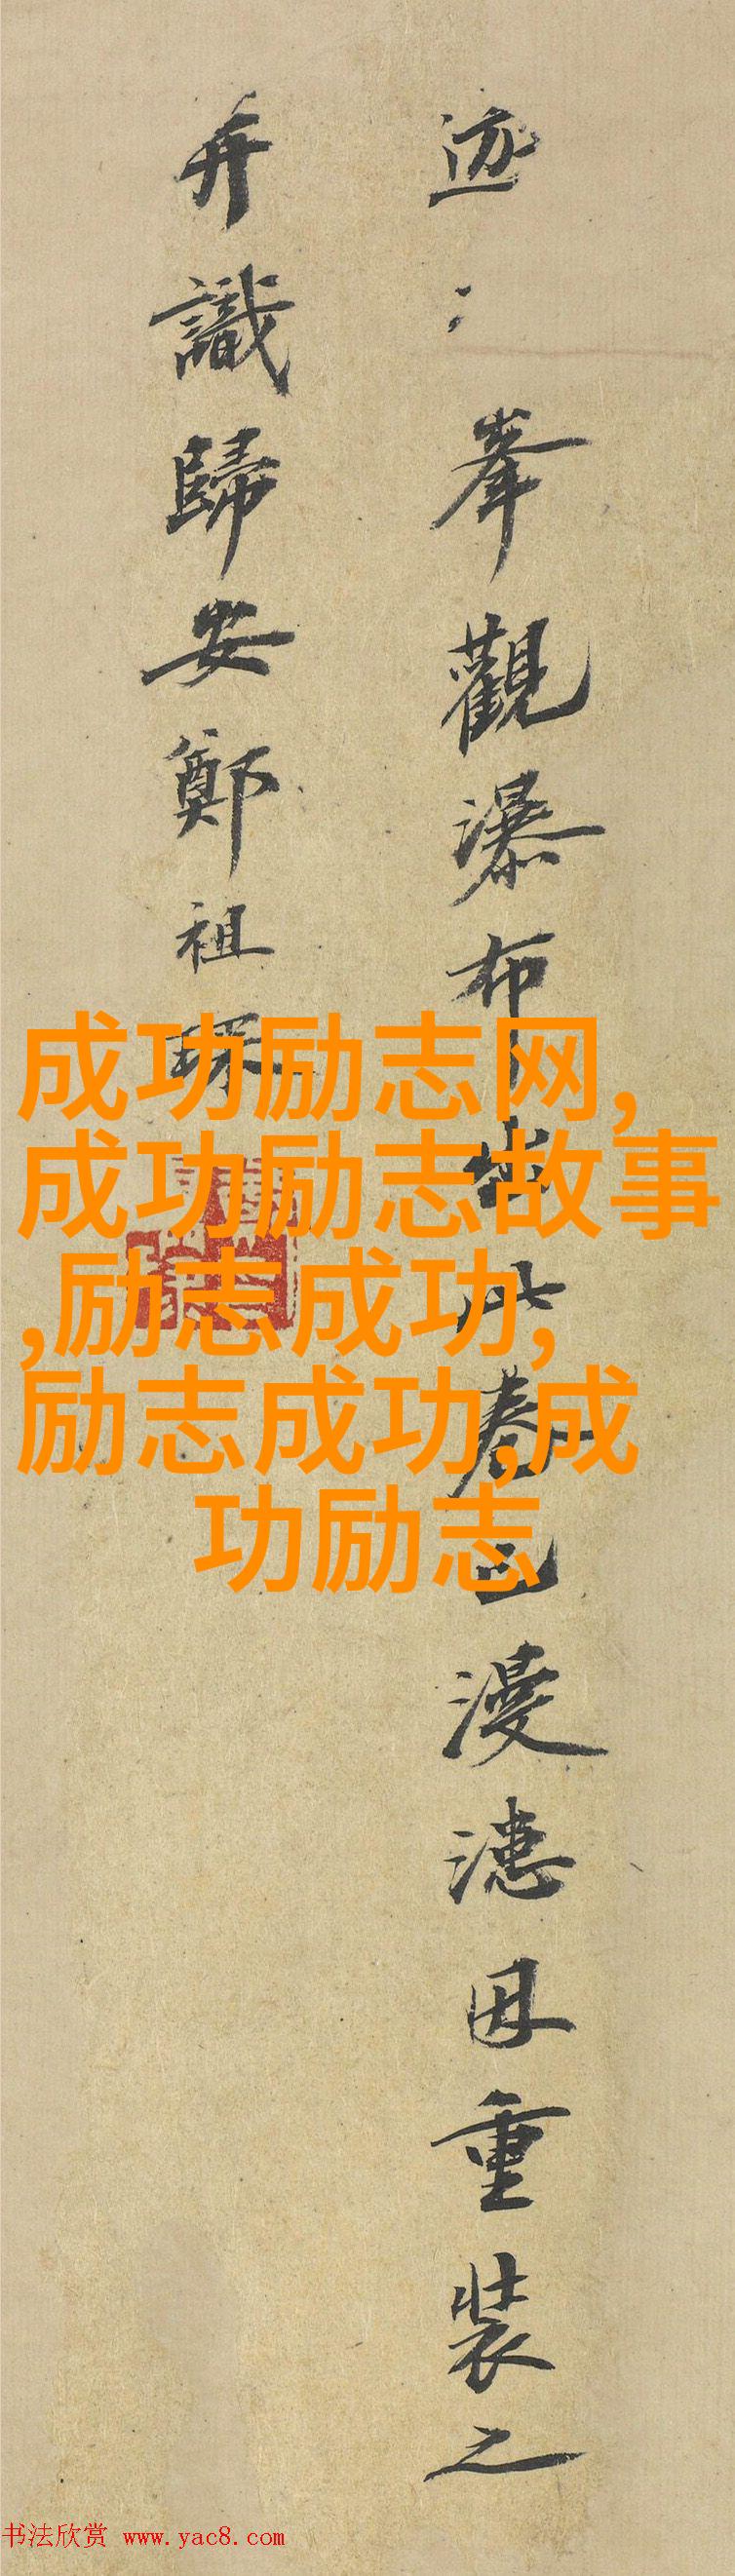 迹
峯觀瀑布
出此卷已漫漶因重装之
并識歸安鄭祖琛
成功励志网,
成功励志故事
,励志成功,
励志成功,成
功励志
书法欣赏 www.yac8.com